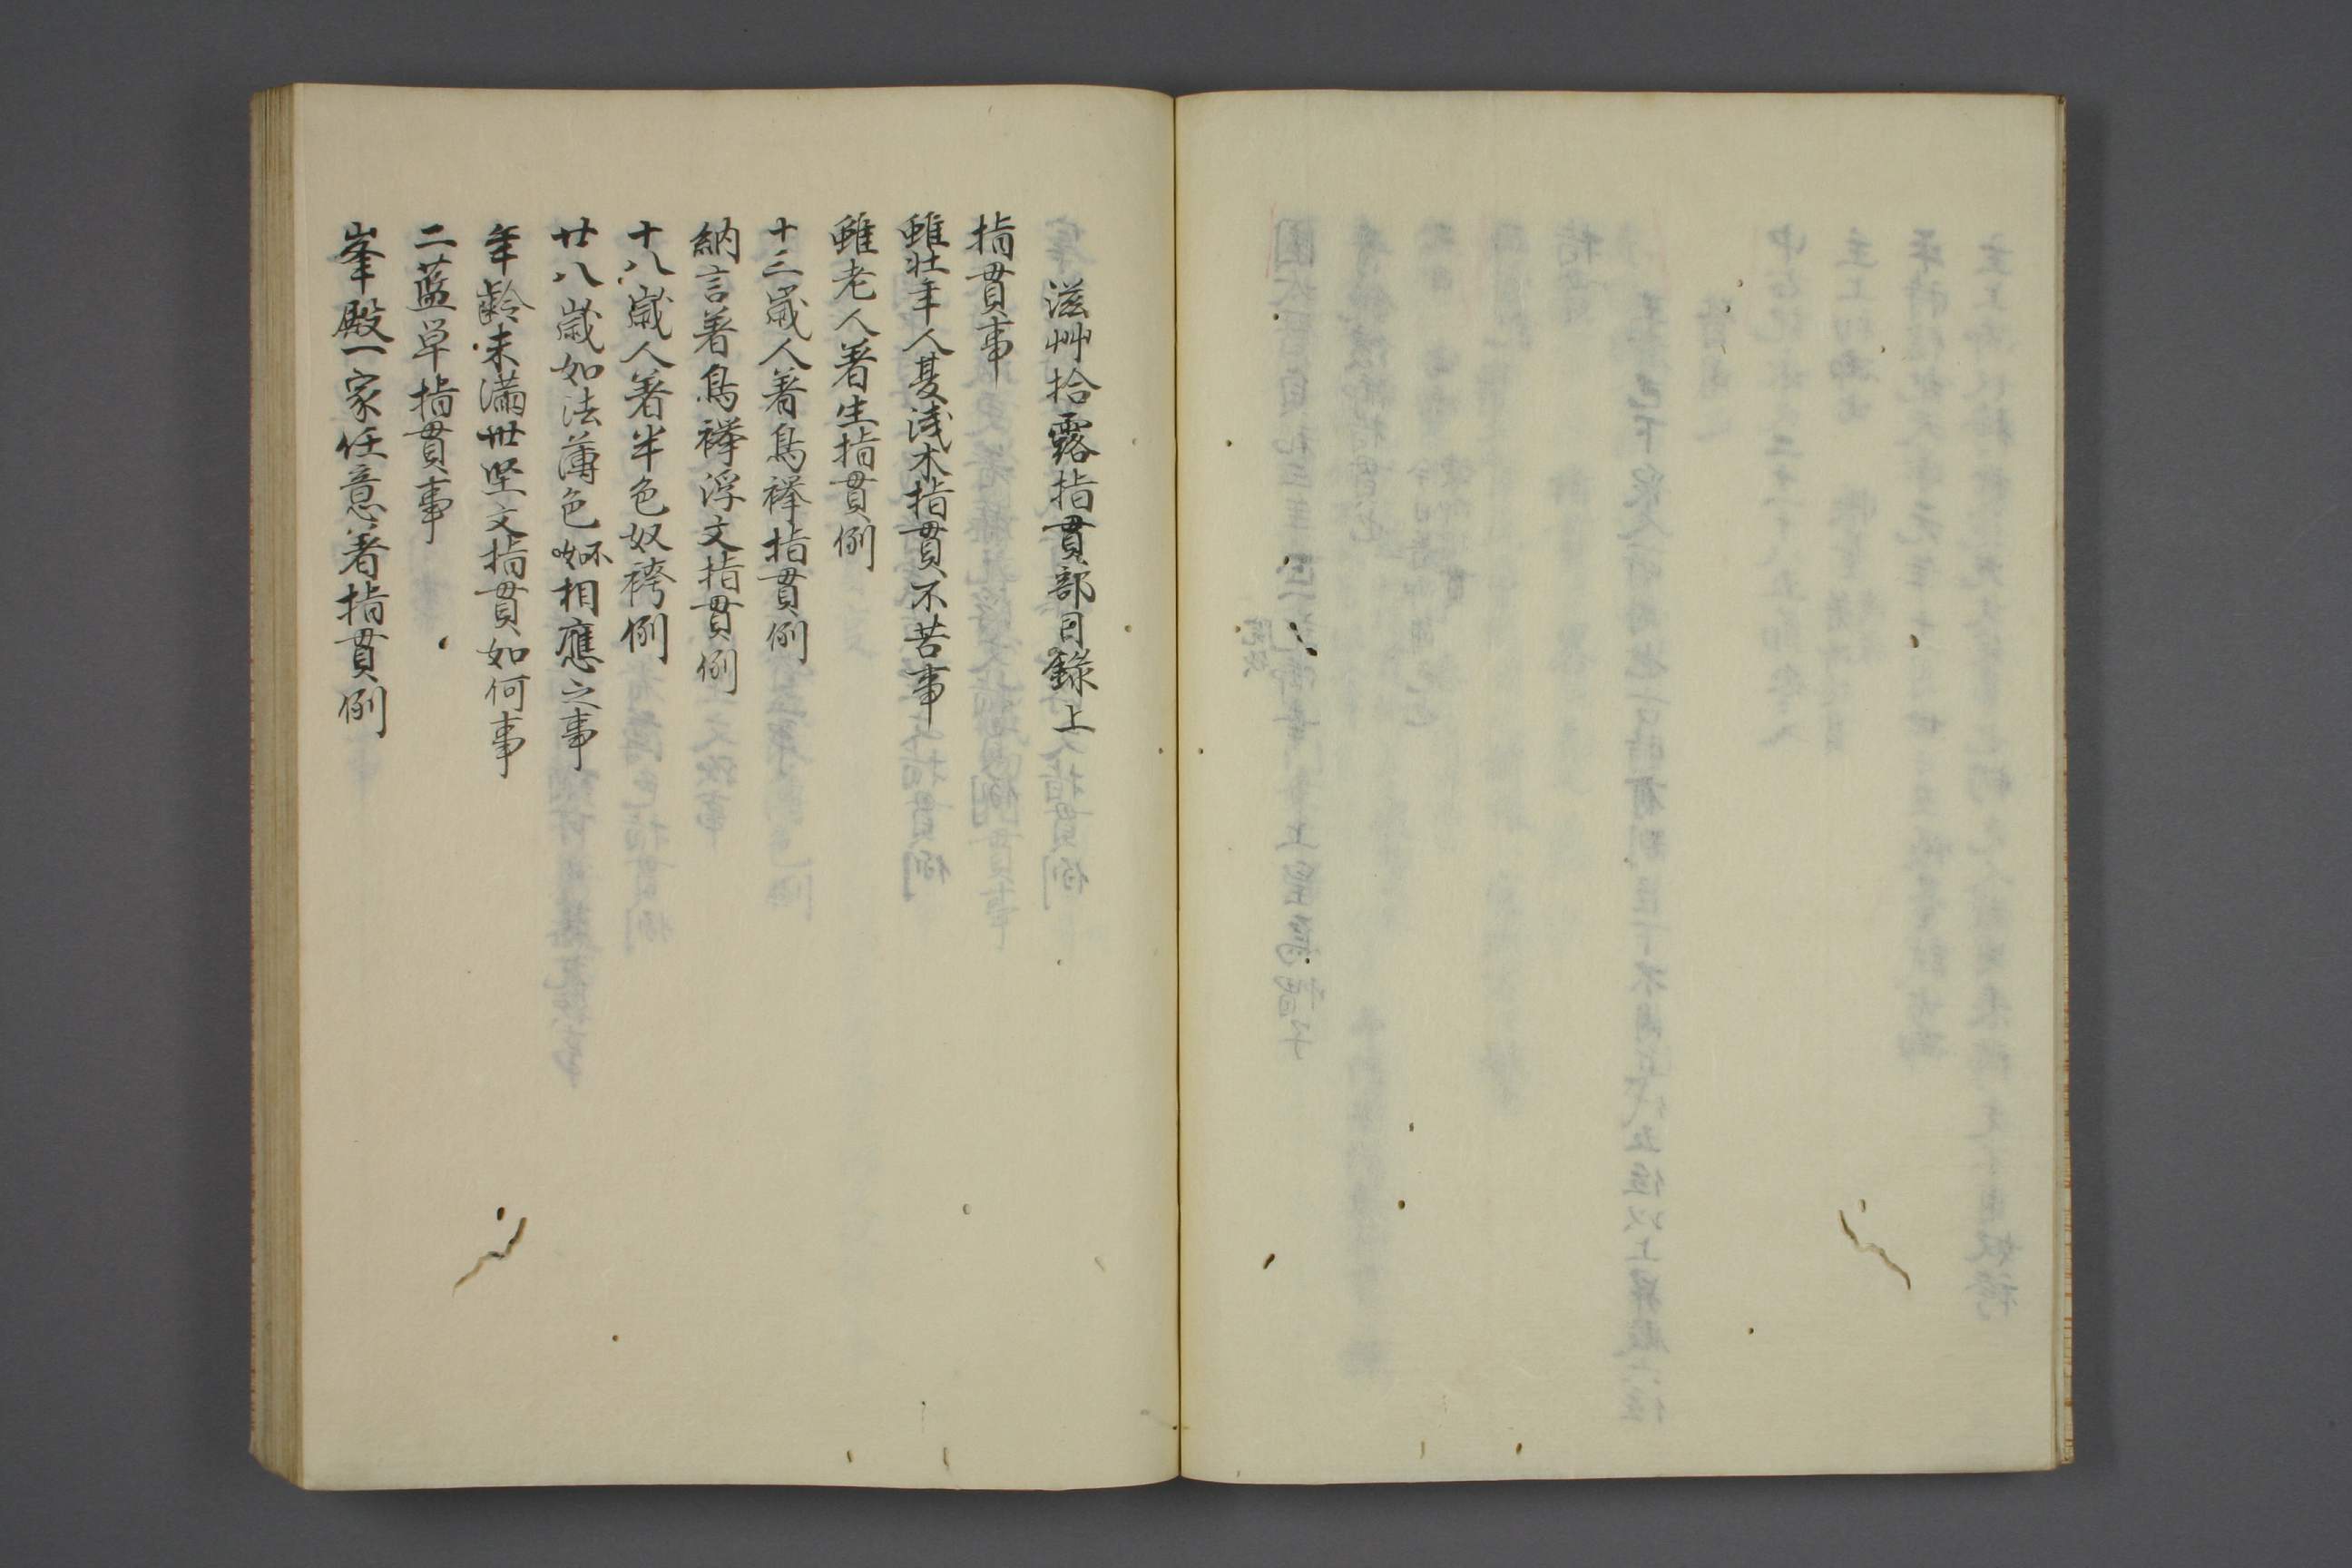 滋艸拾露指貫部目録上
指貫事
雖壮年人夏浅木指貫不苦事
雖老人著生指貫例
十三歳人著鳥襷指貫例
納言著鳥襷浮文指貫例
十八歳人著半色奴袴例
廿八歳如法薄色 相應之事
年齢未満卅堅文指貫如何事
二藍單指貫事
峯殿一家任意著指貫例